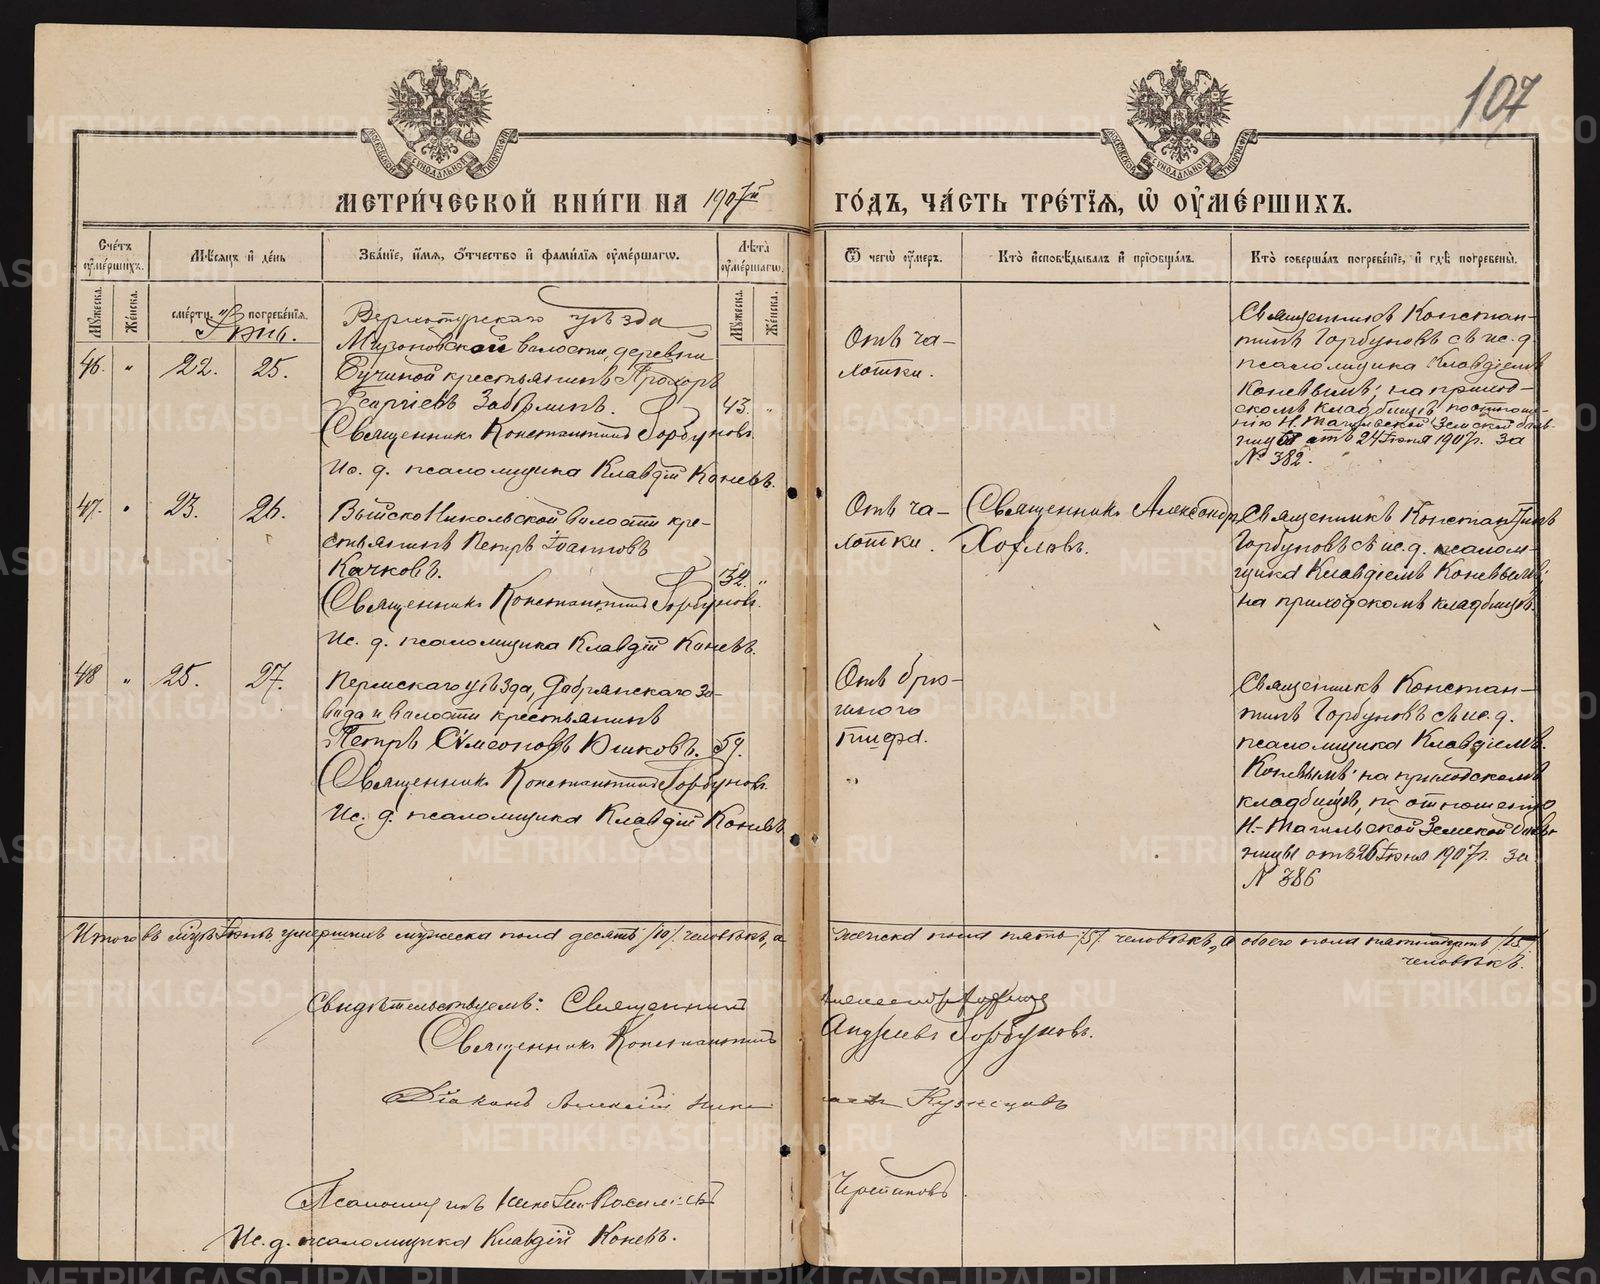 107
МЕТРИ́ЧЕСКОЙ КНИ́ГИ НА 1907й ГО́ДЪ, ЧА́СТЬ ТРЕ́ТІѦ, Ѿ ОУМЕ́РШИХЪ.
Сче́тъ оуме́ршихъ.
Мꙋжеска.
Же́нска.
Мѣсѧцъ и де́нь
сме́рти.
погребе́нїѧ.
Зва́нїе, и́мѧ, о́тчество и фами́лїѧ оуме́ршагѡ.
Лѣта̀ оуме́ршагѡ.
Мꙋжеска.
Же́нска.
Ѿ чегѡ̀ оу́меръ.
Кто̀ исповѣ́дывалъ и прїѡбща́лъ.
Кто̀ соверша́лъ погребе́нїе, и гдѣ̀ погребены̀.
Іюнь.
46. " 22. 25.
Верхотурскаго уѣзда
волости, деревни
крестьянинъ Прохоръ
43. "
Священникъ Константинъ Горбуновъ.
Ис. д. псаломщика Клавдій Коневъ.
Отъ ча-
хотки.
Священникъ Констан-
тинъ Горбуновъ съ ис. д.
псаломщика Клавдіемъ
Коневымъ; на приход-
скомъ кладбищѣ, по отноше-
нію Н. Тагильской Земской боль-
ницы отъ 24 Іюня 1907 г. за
№ 382.
47. " 23. 26.
Выйско Никольской волости кре-
стьянинъ Петръ Іоанновъ
Качковъ.
32. "
Священникъ Константинъ Горбуновъ.
Ис. д. псаломщика Клавдій Коневъ.
Отъ ча-
хотки.
Священникъ Александръ
Хохловъ.
Священникъ Константинъ
Горбуновъ съ ис. д. псалом-
щика Клавдіемъ Коневымъ;
на приходскомъ кладбищѣ.
48 " 25. 27.
Пермскаго уѣзда, Добрянскаго за-
вода и волости крестьянинъ
Петръ Сѵмеоновъ
59.
Священникъ Константинъ Горбуновъ.
Ис. д. псаломщика Клавдій Коневъ
Отъ брю-
шного
тифа.
"
Священникъ Констан-
тинъ Горбуновъ съ ис. д.
псаломщика Клавдіемъ
Коневымъ; на приходскомъ
кладбищѣ, по отношенію
Н.-Тагильской Земской боль-
ницы отъ 26 Іюня 1907 г. за
№ 386
Итого въ мцѣ Іюнѣ умершихъ мужеска пола десять /10/ человѣкъ, а женска пола пять /5/ человѣкъ, а обоего пола пятнадцать /15/
человѣкъ.
Свидѣтельствуемъ: Священникъ Александръ
Священникъ Константинъ Андреевъ Горбуновъ.
Діаконъ Алексій Кузнецовъ
Псаломщикъ
Ис. д. псаломщика Клавдій Коневъ.
METRIKI.GASO-URAL.RU